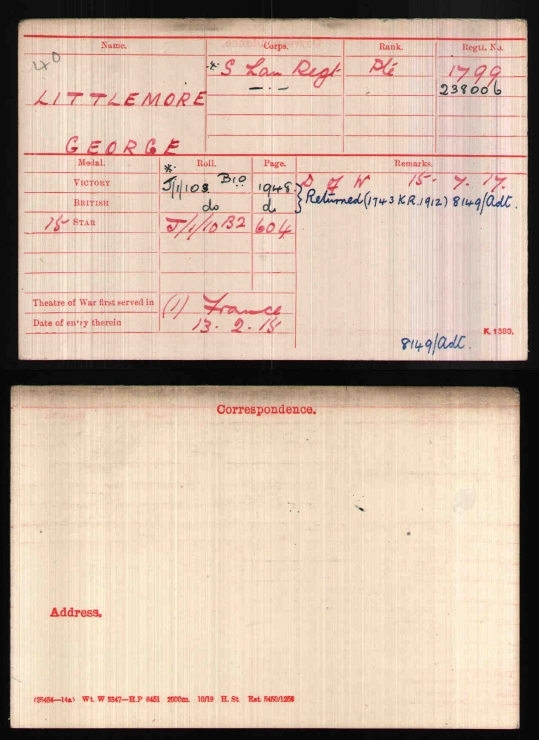 Name. Corps. Rank. Regtl. No.
* S Lan Regt Pte 1799
— . — 238006
LITTLEMORE
GEORGE
Medal. Roll. Page. Remarks.
*
VICTORY J/1/103 B10 1948. D of W 15. 7. 17.
BRITISH do do } Returned (1743 K.R. 1912) 8149/Adt.
15 STAR J/1/10 B2 604
Theatre of War first served in (1) France
Date of entry therein 13. 2. 15
K. 1380.
8149/Adt.
Correspondence.
Address.
Wt. W 3347—H.P 6451 2000m. 10/19 H. St. Est. 5450/1258